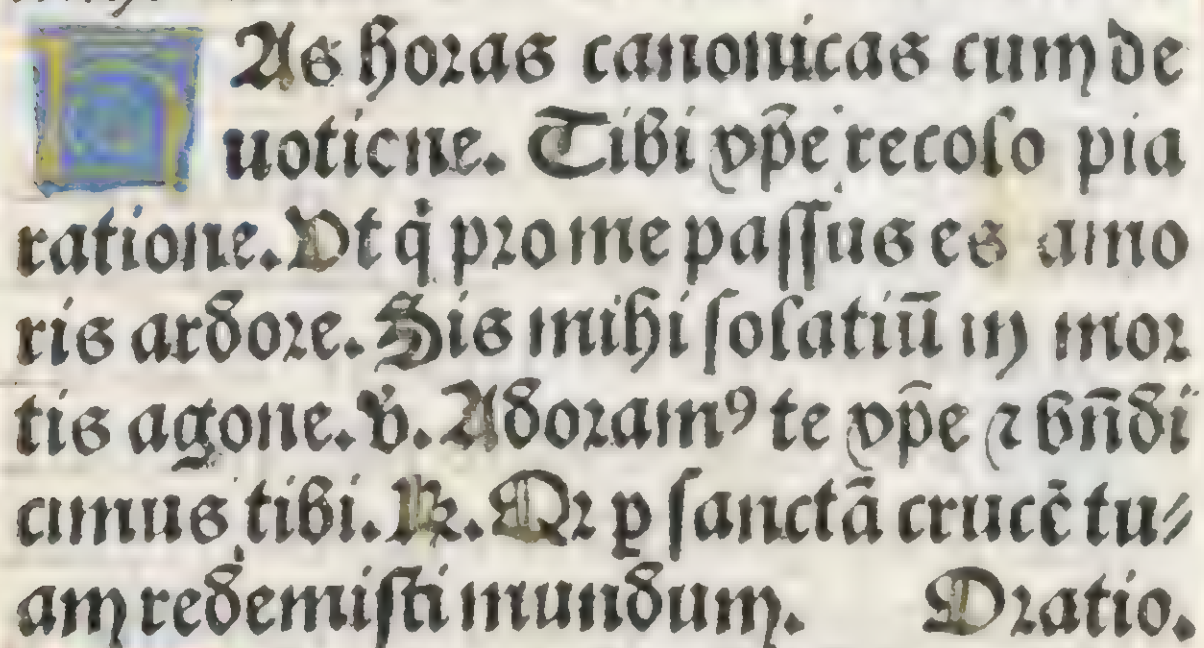 HAs horas canonicas cum de
uotiene. Tibi xp̄e recolo pia
ratione. Ut q̇ pro me passus es amo
ris ardore. Sis mihi solatiū in mor
tis agone. ꝟ. Adoramꝰ te xp̄e ⁊ bn̄di
cimus tibi. ℞. Qꝛ ꝑ sanctā crucē tu⸗
am redemisti mundum. Oratio.